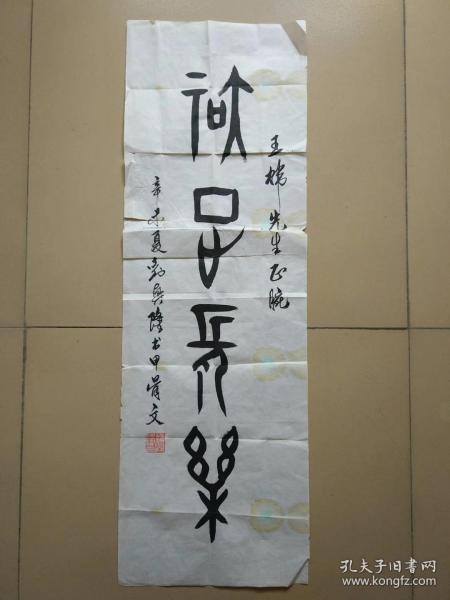 王煒先生正腕
長樂
辛未夏劉興隆书甲骨文
孔夫子旧书网
www.kongfz.com